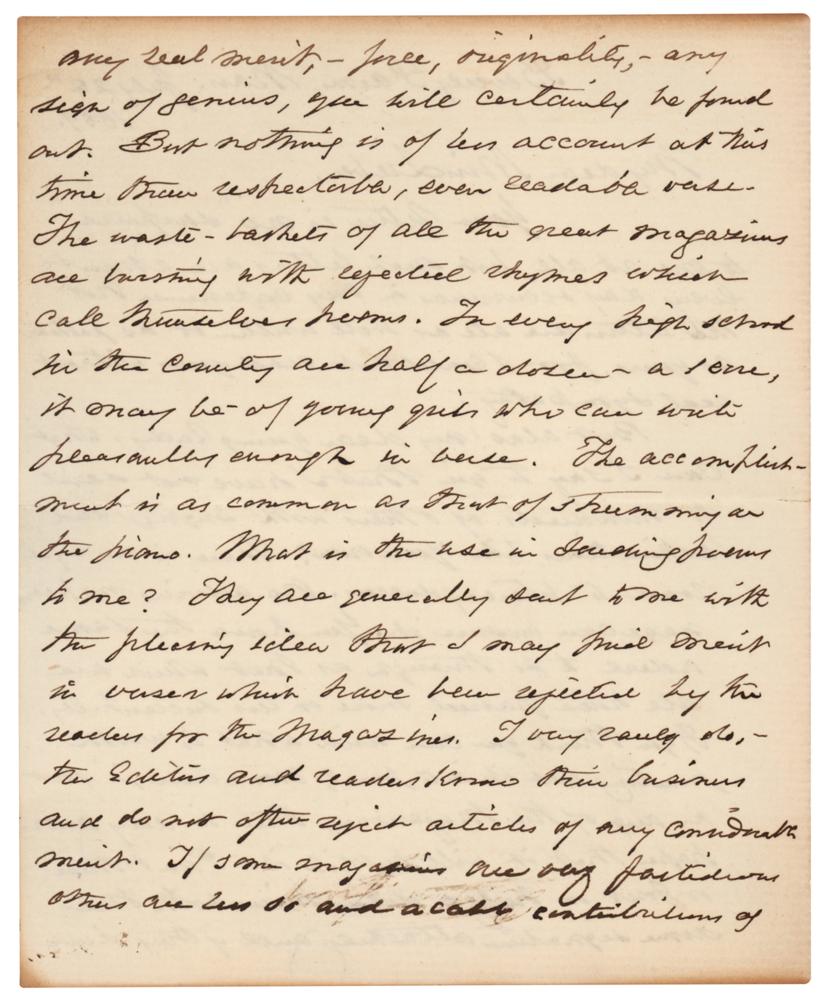 any real merit, – force, originality, – any
sign of genius, you will certainly be found
out. But nothing is of less account at this
time than respectable, even readable verse.
The waste-baskets of all the great magazines
are bursting with rejected rhymes which
call themselves poems. In every high school
in the country are half a dozen – a score,
it may be – of young girls who can write
pleasantly enough in verse. The accomplish-
ment is as common as that of strumming on
the piano. What is the use in sending poems
to me? They are generally sent to me with
the pleasing idea that I may find merit
in verses which have been rejected by the
readers for the Magazines. I very rarely do, –
the Editors and readers know their business
and do not often reject articles of any considerable
merit. If some magazines are very fastidious
others are less so and accept contributions of